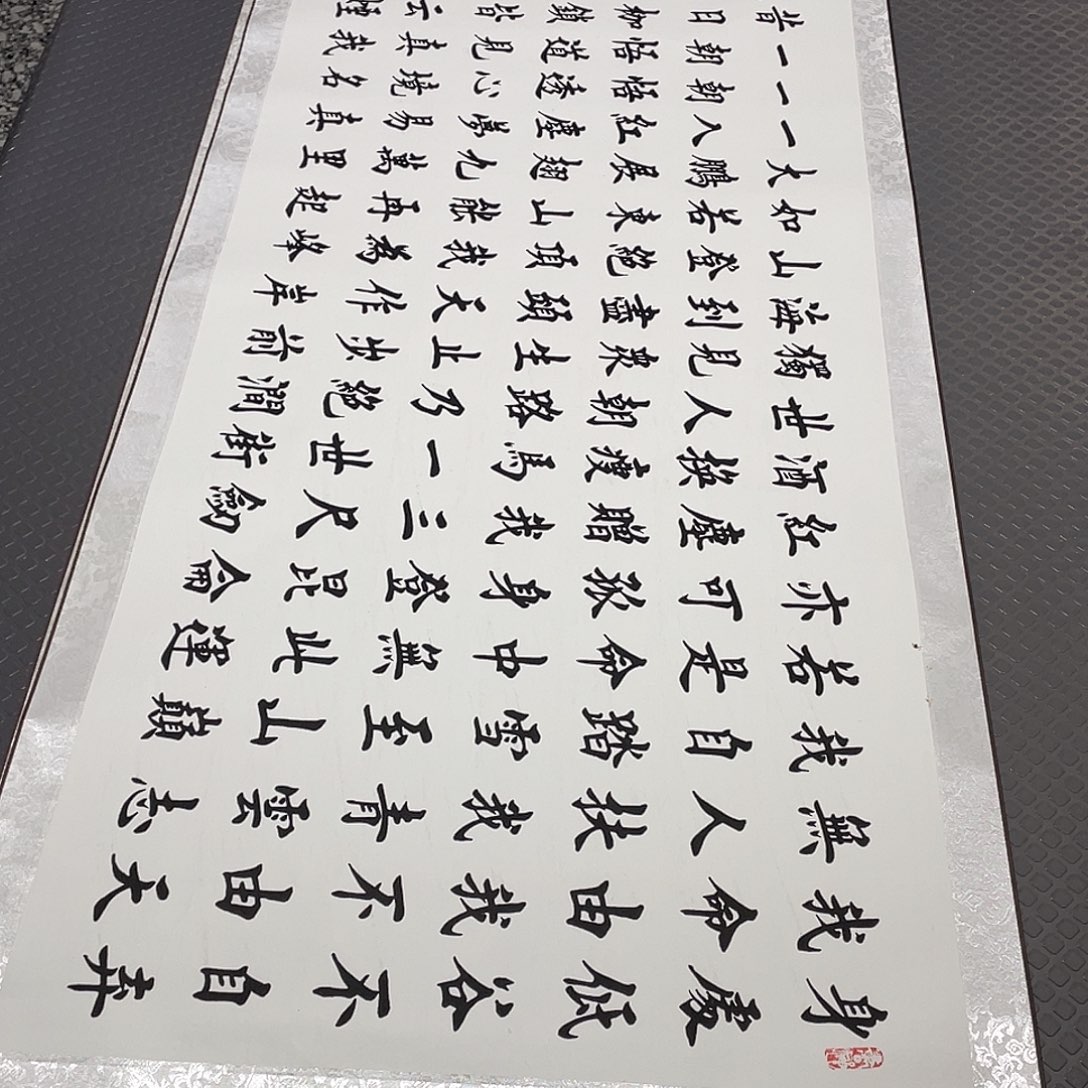 身處低谷不自棄
我命由我不由天
無人扶我青雲志
我自踏雪至山巔
若是命中無此運
亦可孤身登昆侖
紅塵贈我三尺劍
酒換瘦馬一世街
世人朝路乃絕澗
獨見眾生止步前
海到盡頭天作岸
山登絕頂我為峰
如若東山能再起
大鵬展翅九萬里
一入紅塵夢易真
一朝悟透心境名
一朝悟道見真我
昔日枷鎖皆云煙